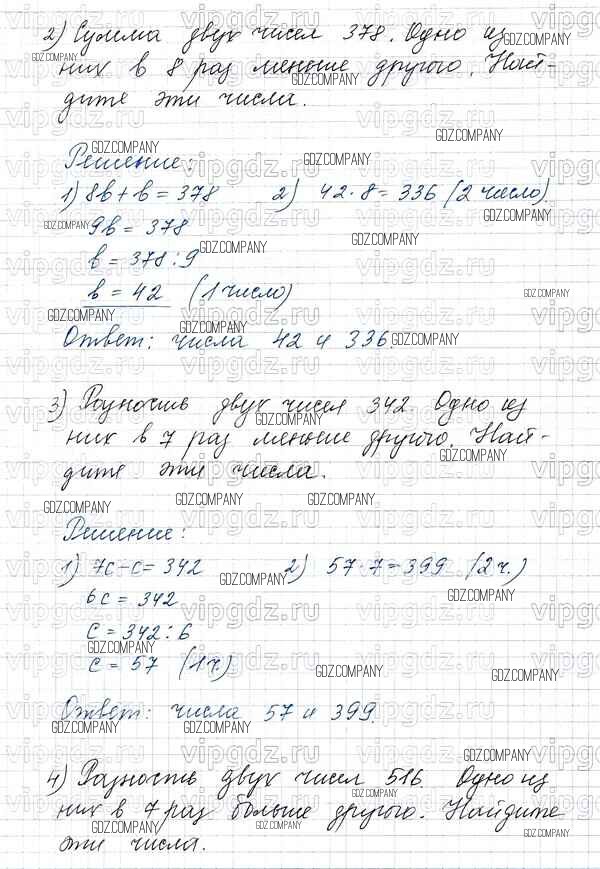 2) Сумма двух чисел 378. Одно из
них в 8 раз меньше другого. Най-
дите эти числа.
Решение:
1) 8b + b = 378 2) 42 · 8 = 336 (2 число).
9b = 378
b = 378 : 9
b = 42 (1 число)
Ответ: числа 42 и 336.
3) Разность двух чисел 342. Одно из
них в 7 раз меньше другого. Най-
дите эти числа.
Решение:
1) 7c - c = 342 2) 57 · 7 = 399 (2 ч.)
6c = 342
c = 342 : 6
c = 57 (1 ч.)
Ответ: числа 57 и 399.
4) Разность двух чисел 516. Одно из
них в 7 раз больше другого. Найдите
эти числа.
vipgdz.ru
GDZ.COMPANY